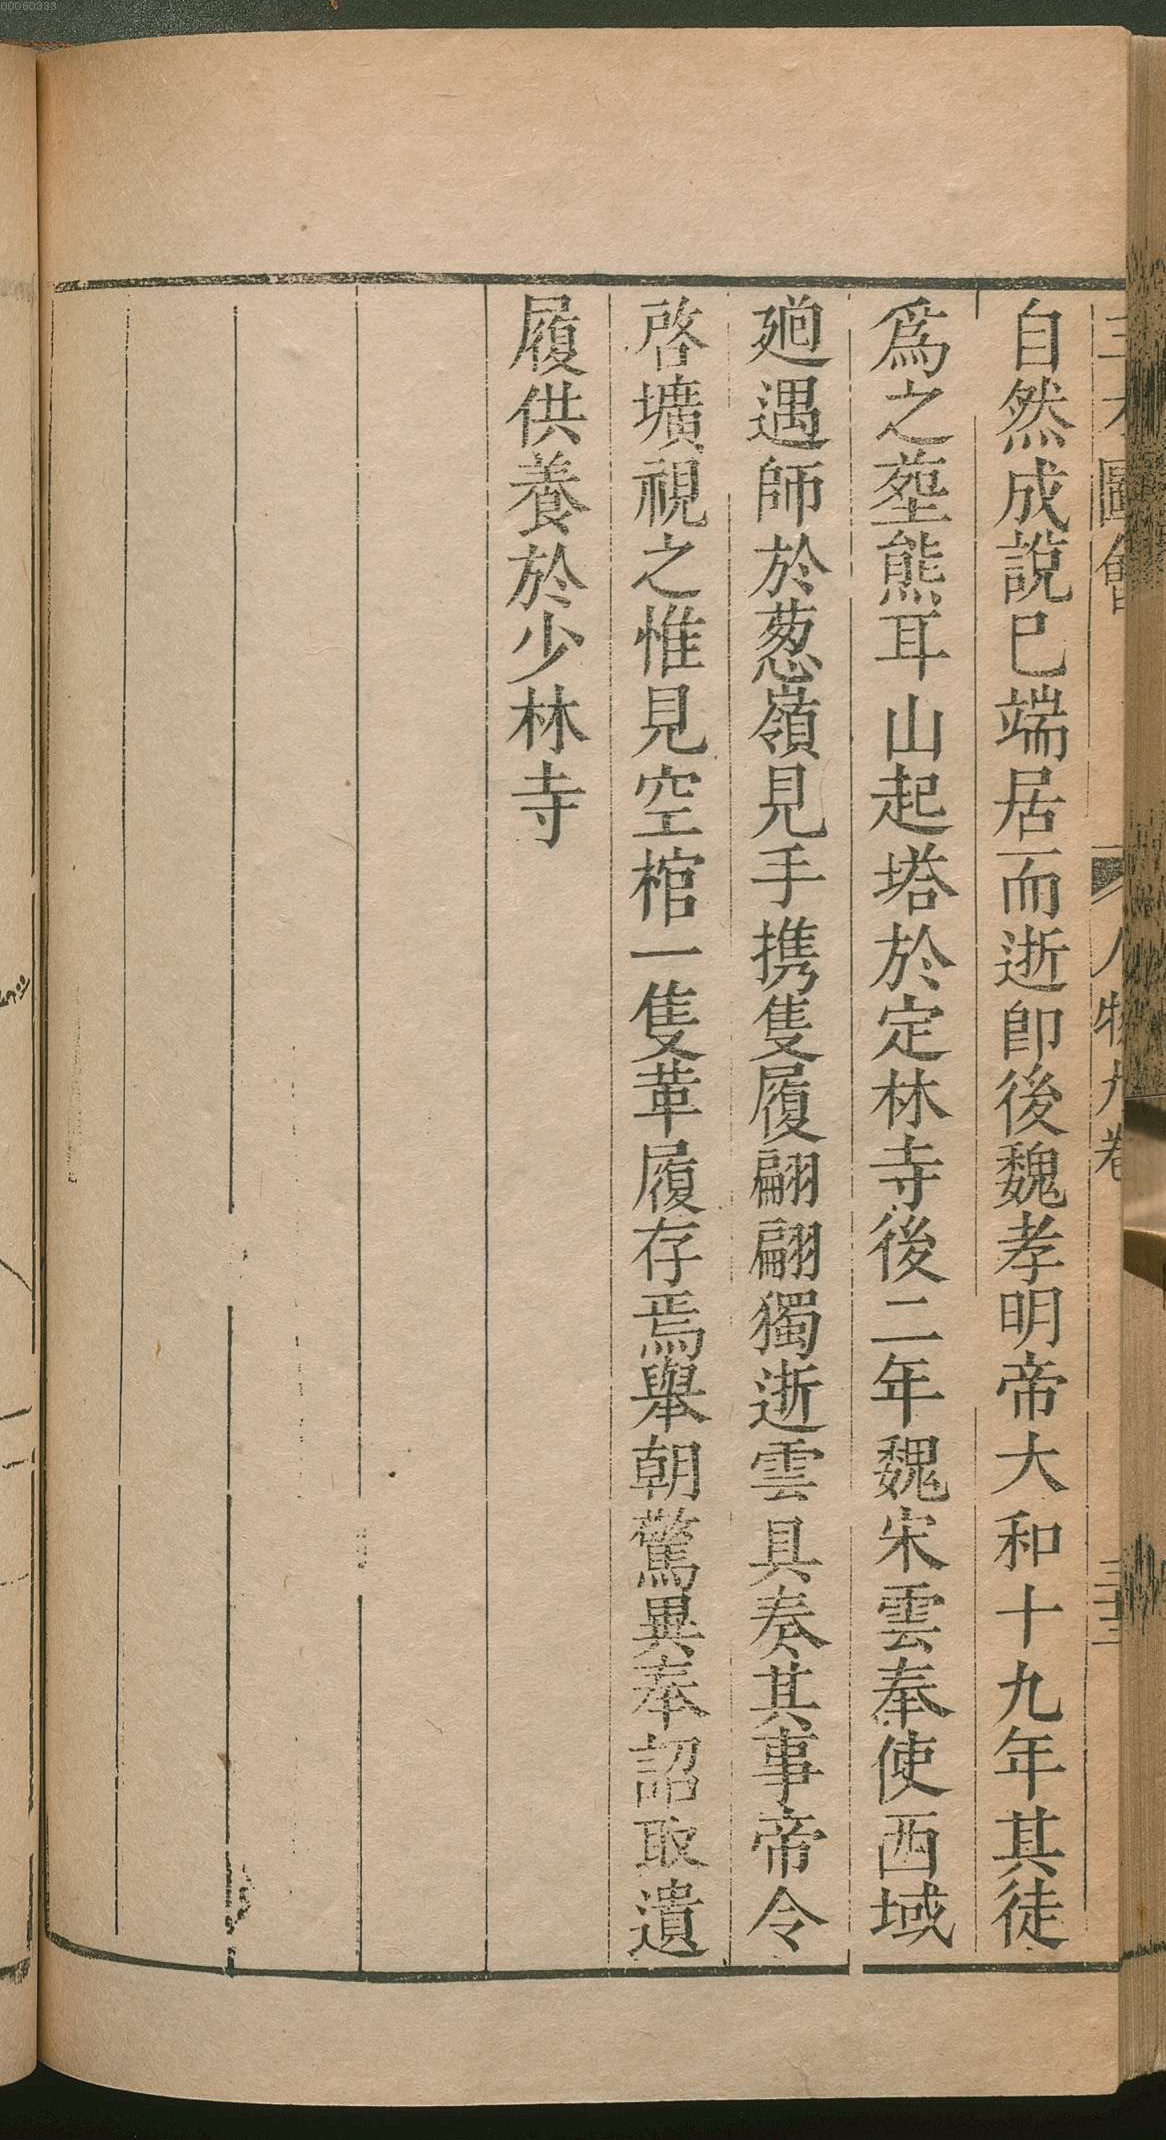 自然成說巳端居而逝卽後魏孝明帝大和十九年其徒
爲之塟熊耳山起塔於定林寺後二年魏宋雲奉使西域
廻遇師於葱嶺見手携隻履翩翩獨逝雲具奏其事帝令
啓壙視之惟見空棺一隻革履存焉舉朝驚異奉詔取遺
履供養於少林寺
三才圖會 人物九卷
00060333